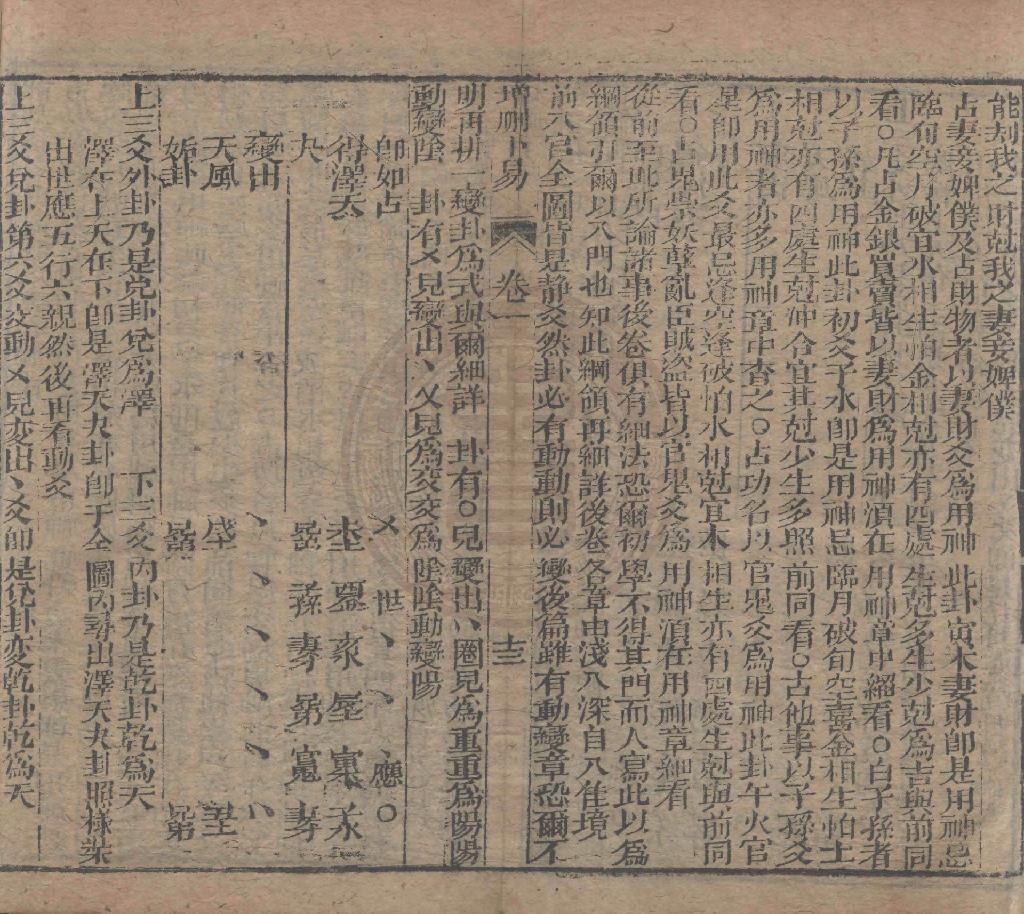 能刦我之財尅我之妻妾婢僕
占妻妾婢僕及占財物者以妻財爻爲用神此卦寅木妻財卽是用神忌
臨旬空月破宜水相生怕金相尅亦有四處生尅多生少尅爲吉與前同
看○凡占金銀買賣皆以妻財爲用神湏在用神章中細看○白子孫者
以子孫爲用神此卦初爻子水卽是用神忌臨月破旬空喜金相生怕土
相尅亦有四處生尅冲合宜其尅少生多照前同看○占他事以子孫爻
爲用神者亦多用神章中查之○占功名以官鬼爻爲用神此卦午火官
星卽用此爻最忌逢空逢破怕水相尅宜木相生亦有四處生尅與前同
看○占鬼祟妖孽亂臣賊盜皆以官鬼爻爲用神湏在用神章細看
從前至此所論諸事後卷俱有細法恐爾初學不得其門而入寫此以爲
綱領引爾以入門也知此綱領再細詳後卷各章由淺入深自入佳境
前八宫全圖皆是静爻然卦必有動動則必變後篇雖有動變章恐爾不
增刪卜易 卷一 十三
明再拼一變卦爲式與爾細詳 卦有○見變出、、圈見爲重重爲陽陽
動變陰 卦有ㄨ見變出、ㄨ見爲交交爲陰陰動變陽
卽如占 ㄨ 世、、、應○
得澤天
夬
變出 、、、、、、、
天風
姤卦
上三爻外卦乃是兌卦兌爲澤 下三爻內卦乃是乾卦乾爲天
澤在上天在下卽是澤天夬卦卽于全圖內尋出澤天夬卦照樣粧
出世應五行六親然後再看動爻
上三爻兌卦第六爻交動ㄨ見変出、爻卽是兌卦変乾卦乾爲天